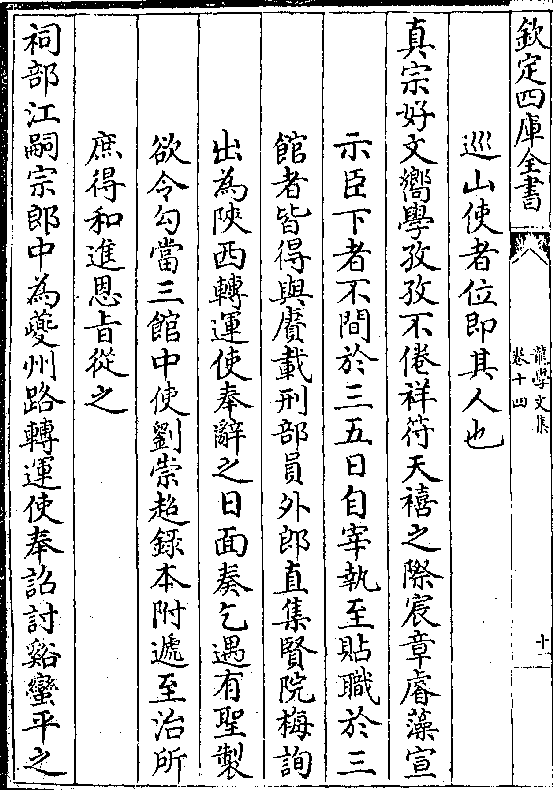 欽定四庫全書
龍學文集
卷十四
十一
巡山使者位即其人也
真宗好文嚮學孜孜不倦祥符天禧之際宸章睿藻宣
示臣下者不間於三五日自宰執至貼職於三
館者皆得與賡載刑部員外郎直集賢院梅詢
出為陝西轉運使奉辭之日面奏乞遇有聖製
欲令勾當三館中使劉崇超錄本附遞至治所
庶得和進恩旨從之
祠部江嗣宗郎中為夔州路轉運使奉詔討谿蠻平之